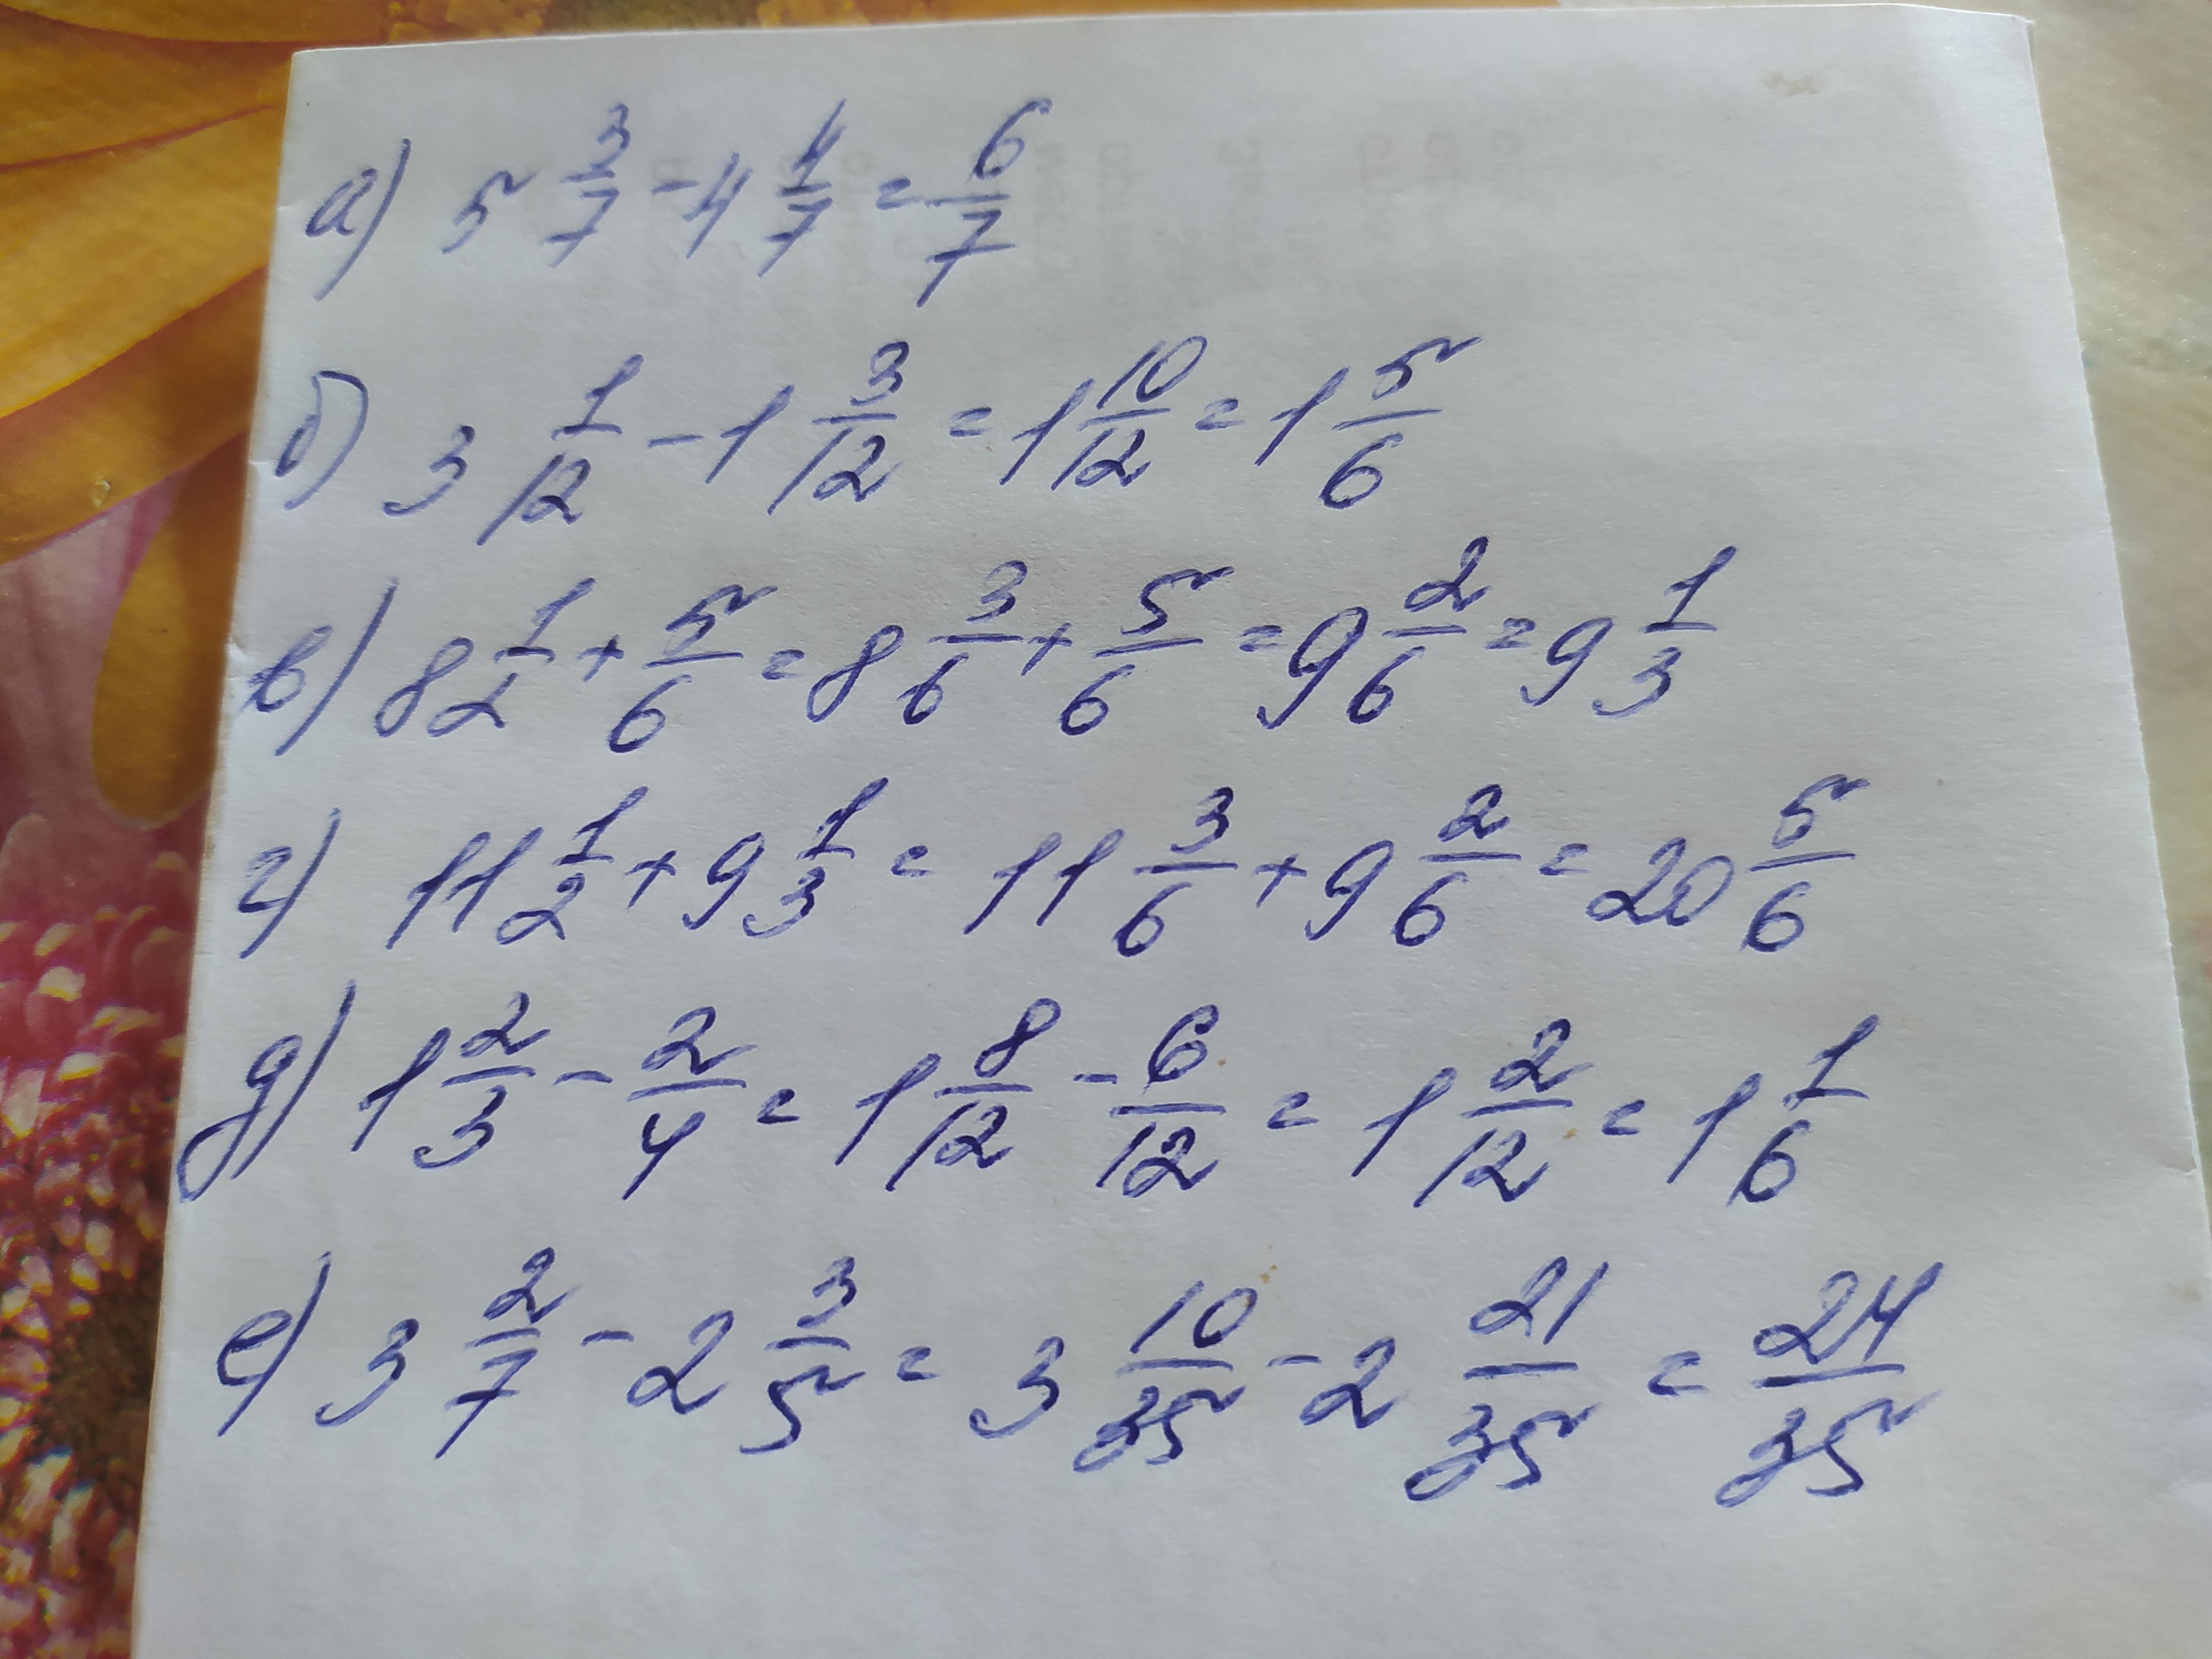 а) 5 3/7 - 4 4/7 = 6/7
б) 3 1/12 - 1 3/12 = 1 10/12 = 1 5/6
в) 8 1/2 + 5/6 = 8 3/6 + 5/6 = 9 2/6 = 9 1/3
г) 11 1/2 + 9 1/3 = 11 3/6 + 9 2/6 = 20 5/6
д) 1 2/3 - 2/4 = 1 8/12 - 6/12 = 1 2/12 = 1 1/6
е) 3 2/7 - 2 3/5 = 3 10/35 - 2 21/35 = 24/35